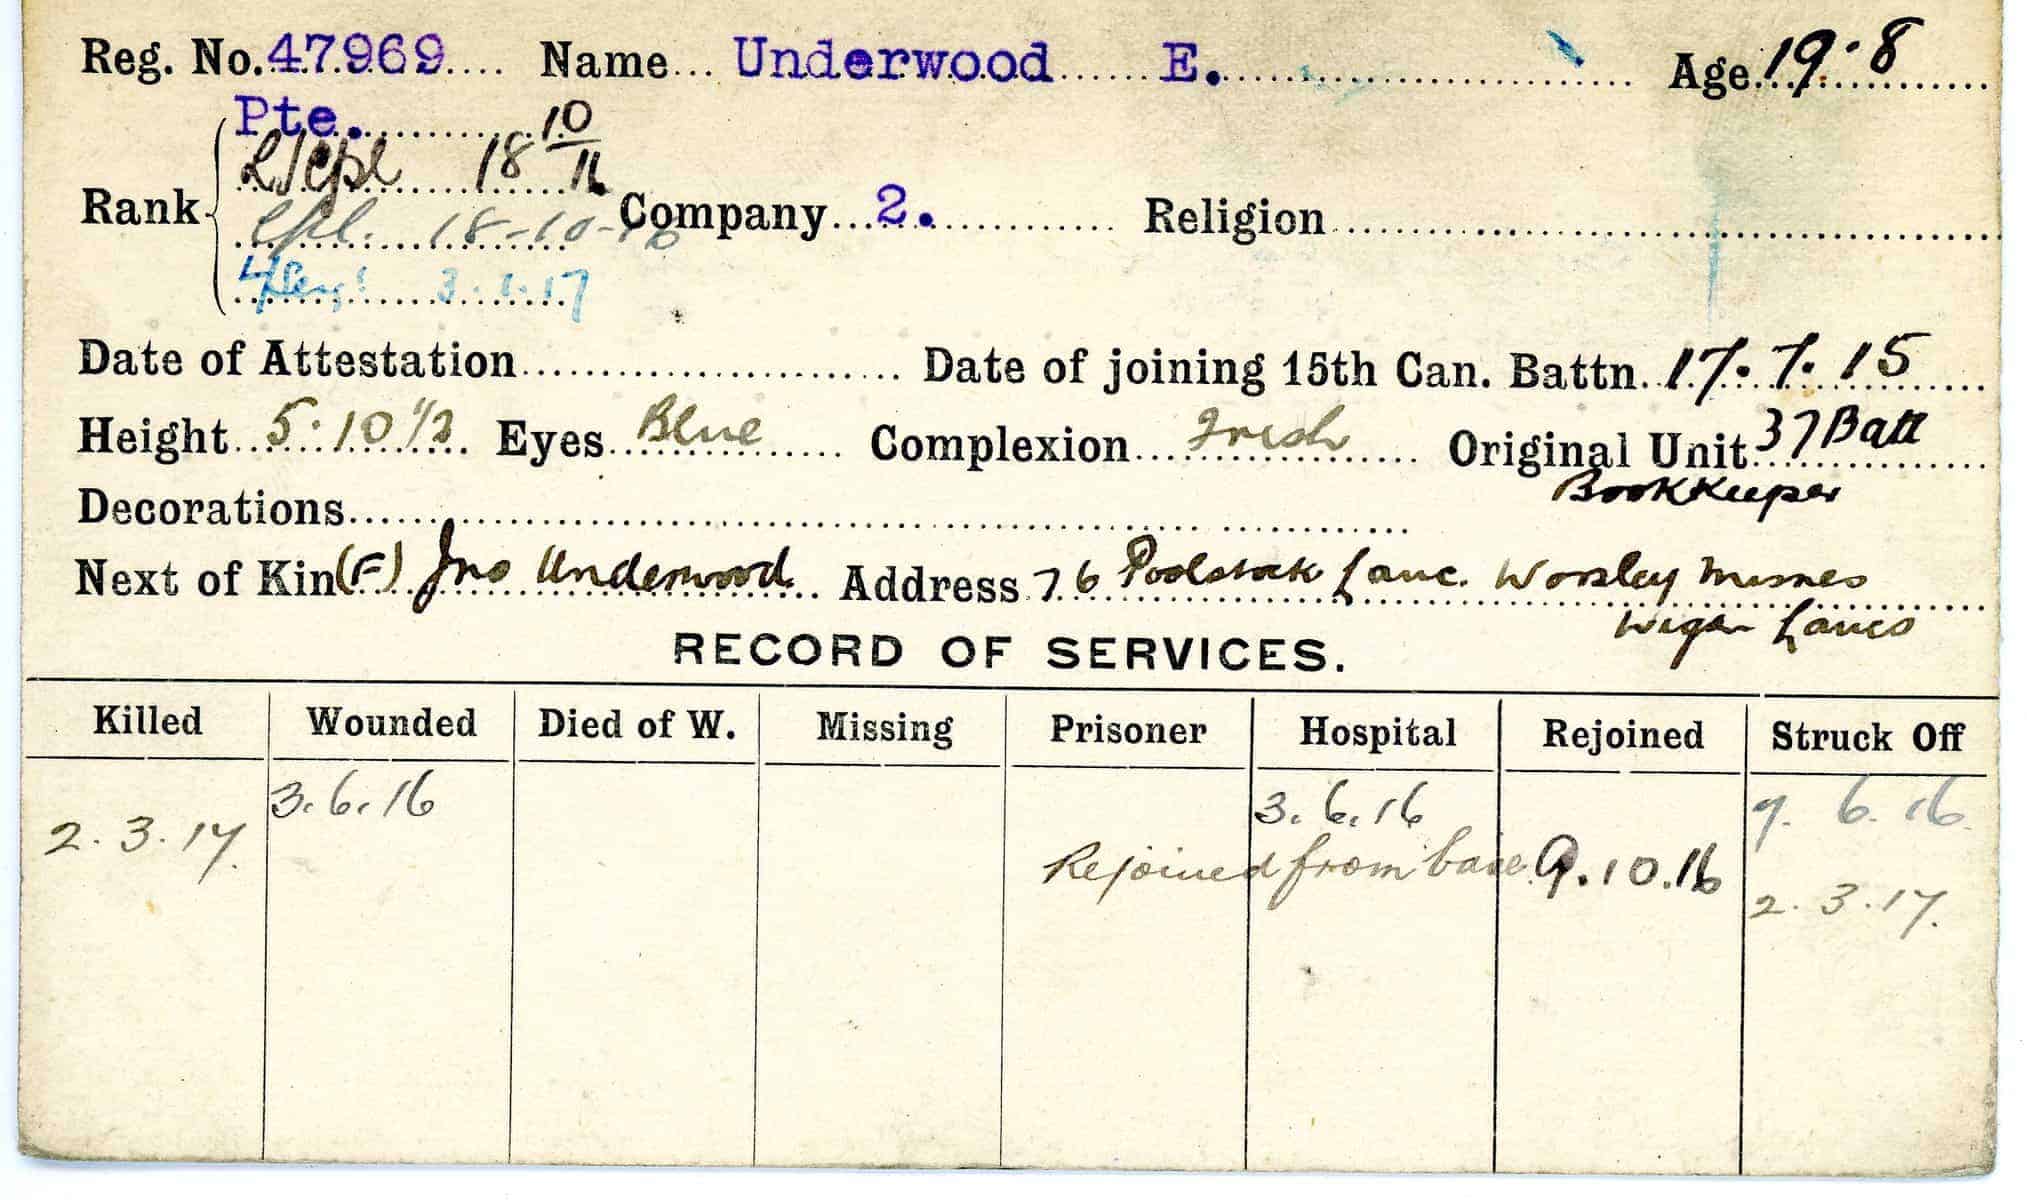 Reg. No. 47969 Name Underwood E. Age 19.8
Pte.
Rank L/Cpl 18 10/16
Cpl. 18-10-16 Company 2. Religion
L/Sergt 3. 1. 17
Date of Attestation Date of joining 15th Can. Battn. 17. 7. 15
Height 5.10 1/2 Eyes Blue Complexion Fresh Original Unit 37 Batt
Bookkeeper
Decorations
Next of Kin (F) Jno Underwood. Address 76 Poolstock Lane. Worsley Mesnes
Wigan Lancs
RECORD OF SERVICES.
Killed Wounded Died of W. Missing Prisoner Hospital Rejoined Struck Off
3.6.16 3.6.16 9. 6. 16
2.3.17. Rejoined from base 9.10.16
2.3.17.